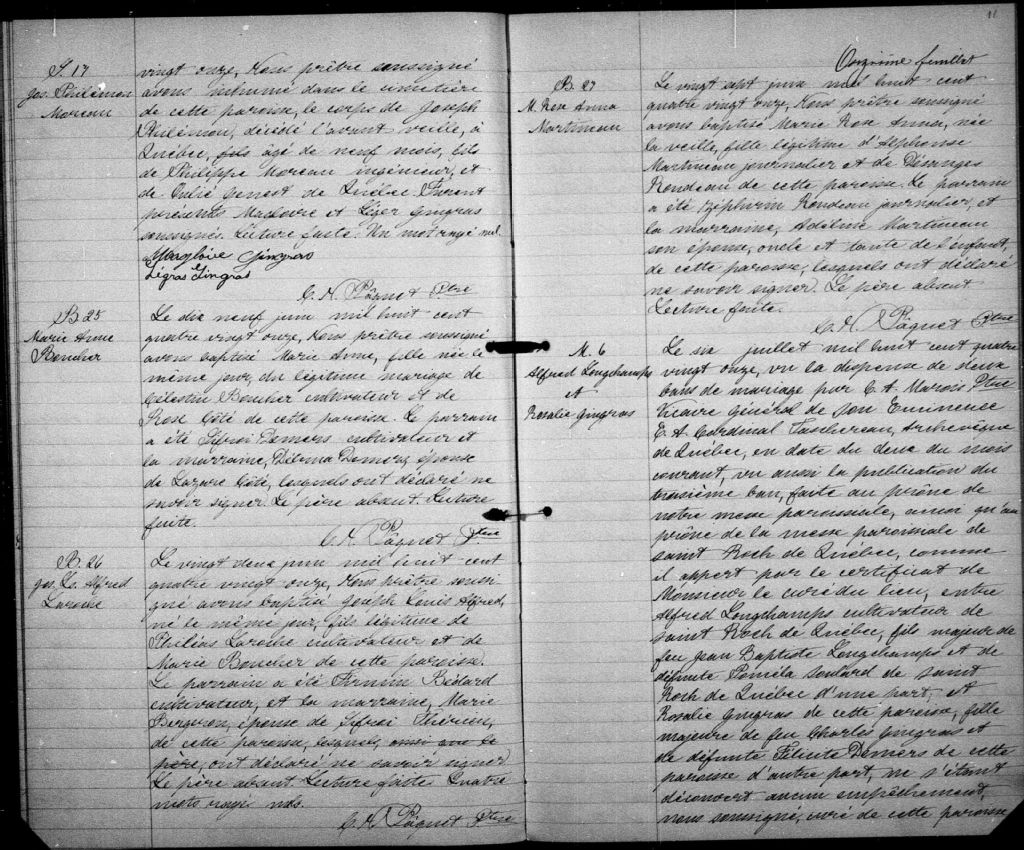 S. 17
Jos. Philémon
Moreau
vingt onze, Nous prêtre soussigné
avons inhumé dans le cimetière
de cette paroisse, le corps de Joseph
Philémon, décédé l'avant veille, à
Québec, fils âgé de neuf mois, fils
de Philippe Moreau ingénieur, et
de Julie Genest de Québec Furent
présents Magloire et Léger Gingras
soussignés. Lecture faite. Un mot rayé nul.
Magloire Gingras
Légras Gingras
C. H. Pâquet Ptre
B. 25
Marie Anne
Boucher
Le dix neuf juin mil huit cent
quatre vingt onze, Nous prêtre soussigné
avons baptisé Marie Anne, fille née le
même jour, du légitime mariage de
Célestin Boucher cultivateur et de
Rose Côté de cette paroisse. Le parrain
a été Sifroi Demers cultivateur et
la marraine, Délima Demers, épouse
de Lazare Côté, lesquels ont déclaré ne
savoir signer. Le père absent. Lecture
faite.
C. H. Pâquet Ptre
B. 26
Jos. Ls. Alfred
Laroche
Le vingt deux juin mil huit cent
quatre vingt onze, Nous prêtre soussi-
gné avons baptisé Joseph Louis Alfred,
né le même jour, fils légitime de
Philéas Laroche cultivateur et de
Marie Boucher de cette paroisse.
Le parrain a été Firmin Bédard
cultivateur, et la marraine, Marie
Bergeron, épouse de Sifroi Thérien,
de cette paroisse, lesquels, ainsi que le
père, ont déclaré ne savoir signer
Le père absent Lecture faite Quatre
mots rayés nuls.
C. H. Pâquet Ptre
11
Onzième feuillet
B. 27
M. Rose Anna
Martineau
Le vingt sept juin mil huit cent
quatre vingt onze, Nous prêtre soussigné
avons baptisé Marie Rose Anna, née
la veille, fille légitime d'Alphonse
Martineau journalier et de Désanges
Rondeau de cette paroisse. Le parrain
a été Zéphirin Rondeau journalier, et
la marraine, Adéline Martineau
son épouse, oncle et tante de l'enfant,
de cette paroisse, lesquels ont déclaré
ne savoir signer. Le père absent
Lecture faite.
C. H. Pâquet Ptre
M. 6
Alfred Longchamps
et
Rosalie Gingras
Le six juillet mil huit cent quatre
vingt onze, vu la dispense de deux
bans de mariage par C. A. Marois Ptre
Vicaire général de Son Eminence
E. A. Cardinal Taschereau, Archevêque
de Québec, en date du deux du mois
courant, vu aussi la publication du
troisième ban, faite au prône de
notre messe paroissiale, ainsi qu'au
prône de la messe paroissiale de
saint Roch de Québec, comme
il appert par le certificat de
Monsieur le curé du lieu, entre
Alfred Longchamps cultivateur de
saint Roch de Québec, fils majeur de
feu Jean Baptiste Longchamps et de
défunte Paméla Soulard de saint
Roch de Québec d'une part, et
Rosalie Gingras de cette paroisse, fille
majeure de feu Charles Gingras et
de défunte Félicité Demers de cette
paroisse d'autre part, ne s'étant
découvert aucun empêchement,
nous soussigné, curé de cette paroisse